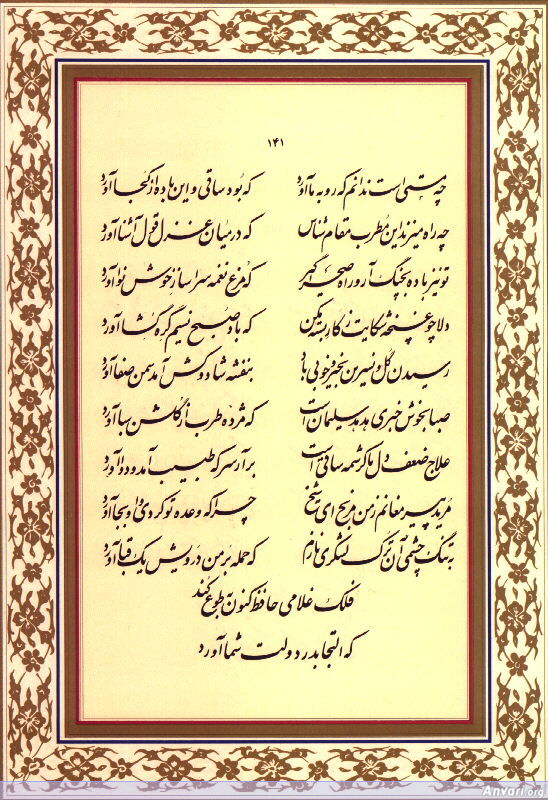 ۱۴۱
چه مستی است ندانم که رو به ما آورد که بود ساقی و این باده از کجا آورد
چه راه میزند این مطرب مقام شناس که در میان غزل قول آشنا آورد
تو نیز باده بچنگ آر و راه صحرا گیر که مرغ نغمه سرا ساز خوش نوا آورد
دلا چو غنچه شکایت ز کار بسته مکن که باد صبح نسیم گره گشا آورد
رسیدن گل و نسرین بخیر و خوبی باد بنفشه شاد و کش آمد سمن صفا آورد
صبا بخوش خبری هدهد سلیمان است که مژده طرب از گلشن سبا آورد
علاج ضعف دل ما کرشمه ساقی است برآر سر که طبیب آمد و دوا آورد
مرید پیر مغانم ز من مرنج ای شیخ چرا که وعده تو کردی و او بجا آورد
به تنگ چشمی آن ترک لشکری نازم که حمله بر من درویش یک قبا آورد
فلک غلامی حافظ کنون به طوع کند
که التجا بدر دولت شما آورد
Anvari.org